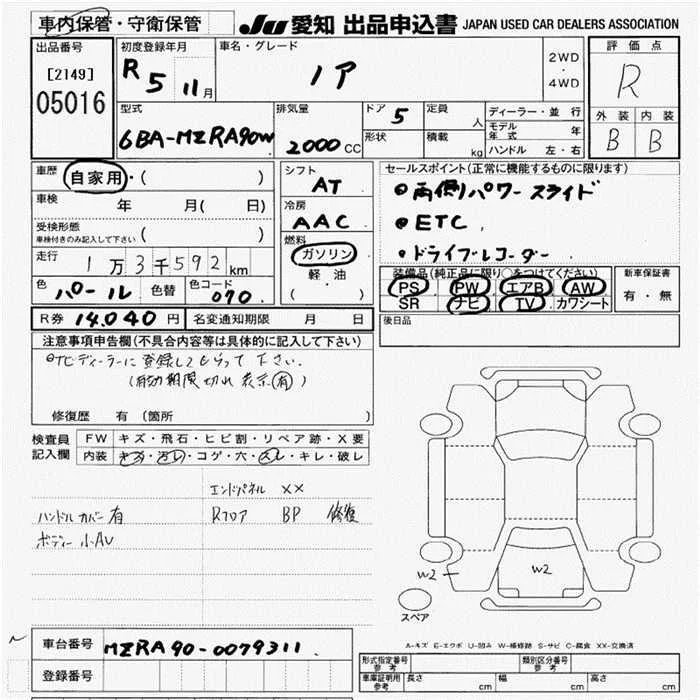 車内保管・守衛保管 JU 愛知 出品申込書 JAPAN USED CAR DEALERS ASSOCIATION
出品番号
[2149]
05016
初度登録年月
R 5 11月
車名・グレード
ノア
2WD
・
4WD
評価点
R
外装 内装
B B
型式
6BA-MZRA90W
排気量
2000 CC
ドア 5
形状
定員 人
積載 kg
ディーラー・並行
モデル年式 年
ハンドル 左・右
車歴 自家用・( )
車検 年 月( 日)
受検形態
車検付きのみ記入して下さい ( )
走行 1万3千592km
色 パール 色替 色コード 070
シフト
AT
冷房
AAC
燃料
ガソリン
軽油
( )
セールスポイント(正常に機能するものに限ります)
・両側パワースライド
・ETC
・ドライブレコーダー
装備品(純正品に限り○をつけてください)
PS PW エアB AW
SR ナビ TV カワシート
新車保証書
有・無
R券 14,040円 名変通知期限 月 日
後日品
注意事項申告欄(不具合内容等は具体的に記入して下さい)
・ナビディーラーに登録してもらって下さい.
(有効期限切れ表示有)
修復歴 有(箇所 )
検査員記入欄
FW キズ・飛石・ヒビ割・リペア跡・X要
内装 キズ・汚レ・コゲ・穴・スレ・キレ・破レ
エンドパネル XX
ハンドルカバー有 Rフロア BP 修復
ボディー小AU
W2
W2
スペア
A-キズ E-エクボ U-凹み W-補修跡 S-サビ C-腐食 XX-交換済
車台番号 MZRA90-0079311
登録番号
形式指定番号 参考 類別区分番号 参考
車庫証明用 参考 長さ cm 幅 cm 高さ cm